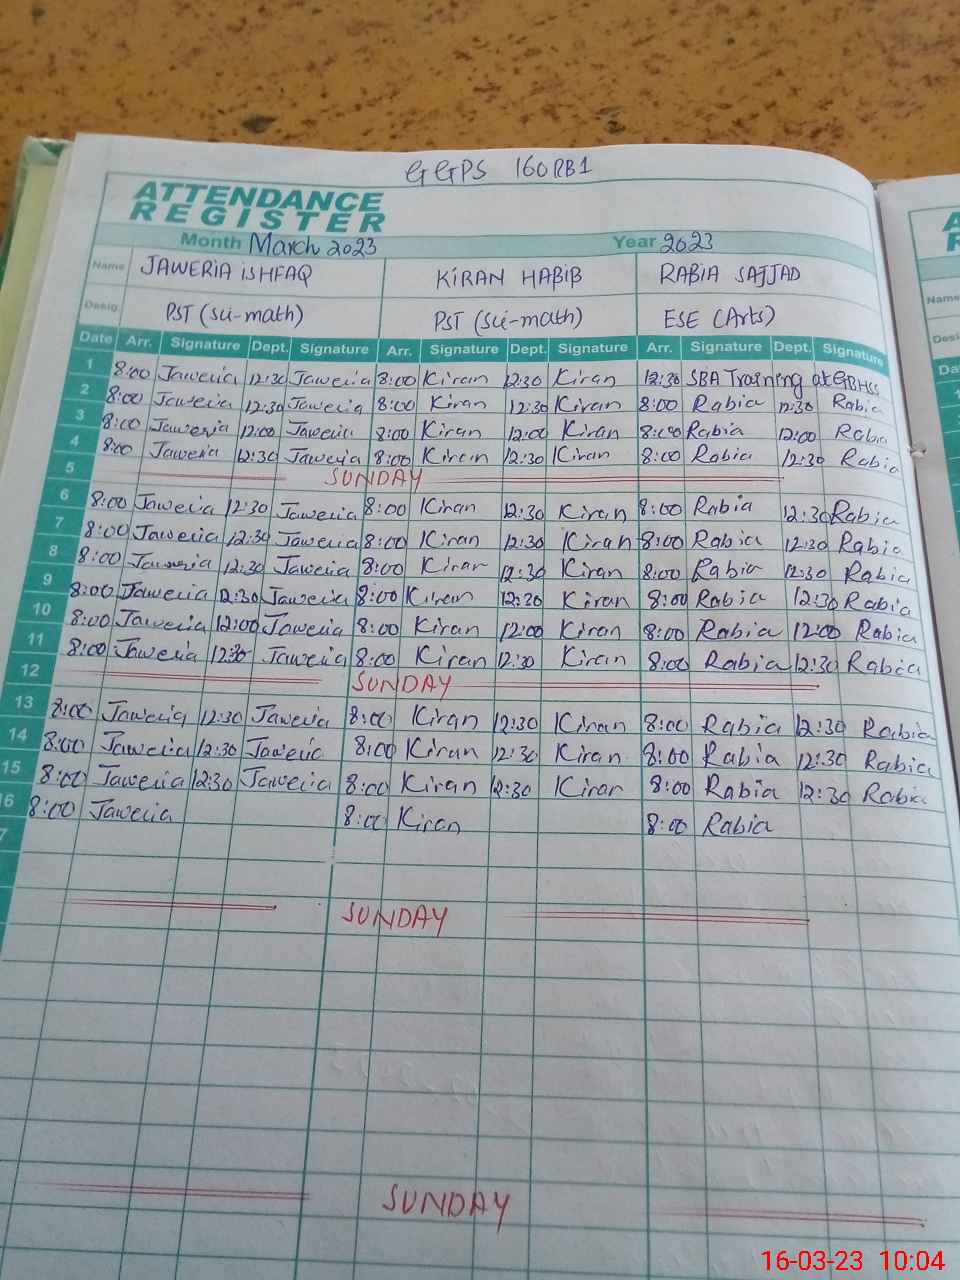 GGPS 160RB1
ATTENDANCE
REGISTER
Month March 2023 Year 2023
Name JAWERIA ISHFAQ KIRAN HABIB RABIA SAJJAD Name
Desig. PST (Sci-math) PST (Sci-math) ESE (Arts)
Date Arr. Signature Dept. Signature Arr. Signature Dept. Signature Arr. Signature Dept. Signature
1 8:00 Jaweria 12:30 Jaweria 8:00 Kiran 12:30 Kiran 12:30 SBA Training at GBHSS
2 8:00 Jaweria 12:30 Jaweria 8:00 Kiran 12:30 Kiran 8:00 Rabia 12:30 Rabia
3 8:00 Jaweria 12:00 Jaweria 8:00 Kiran 12:00 Kiran 8:00 Rabia 12:00 Rabia
4 8:00 Jaweria 12:30 Jaweria 8:00 Kiran 12:30 Kiran 8:00 Rabia 12:30 Rabia
5 SUNDAY
6 8:00 Jaweria 12:30 Jaweria 8:00 Kiran 12:30 Kiran 8:00 Rabia 12:30 Rabia
7 8:00 Jaweria 12:30 Jaweria 8:00 Kiran 12:30 Kiran 8:00 Rabia 12:30 Rabia
8 8:00 Jaweria 12:30 Jaweria 8:00 Kiran 12:30 Kiran 8:00 Rabia 12:30 Rabia
9 8:00 Jaweria 12:30 Jaweria 8:00 Kiran 12:30 Kiran 8:00 Rabia 12:30 Rabia
10 8:00 Jaweria 12:00 Jaweria 8:00 Kiran 12:00 Kiran 8:00 Rabia 12:00 Rabia
11 8:00 Jaweria 12:30 Jaweria 8:00 Kiran 12:30 Kiran 8:00 Rabia 12:30 Rabia
12 SUNDAY
13 8:00 Jaweria 12:30 Jaweria 8:00 Kiran 12:30 Kiran 8:00 Rabia 12:30 Rabia
14 8:00 Jaweria 12:30 Jaweria 8:00 Kiran 12:30 Kiran 8:00 Rabia 12:30 Rabia
15 8:00 Jaweria 12:30 Jaweria 8:00 Kiran 12:30 Kiran 8:00 Rabia 12:30 Rabia
16 8:00 Jaweria 8:00 Kiran 8:00 Rabia
SUNDAY
SUNDAY
16-03-23 10:04